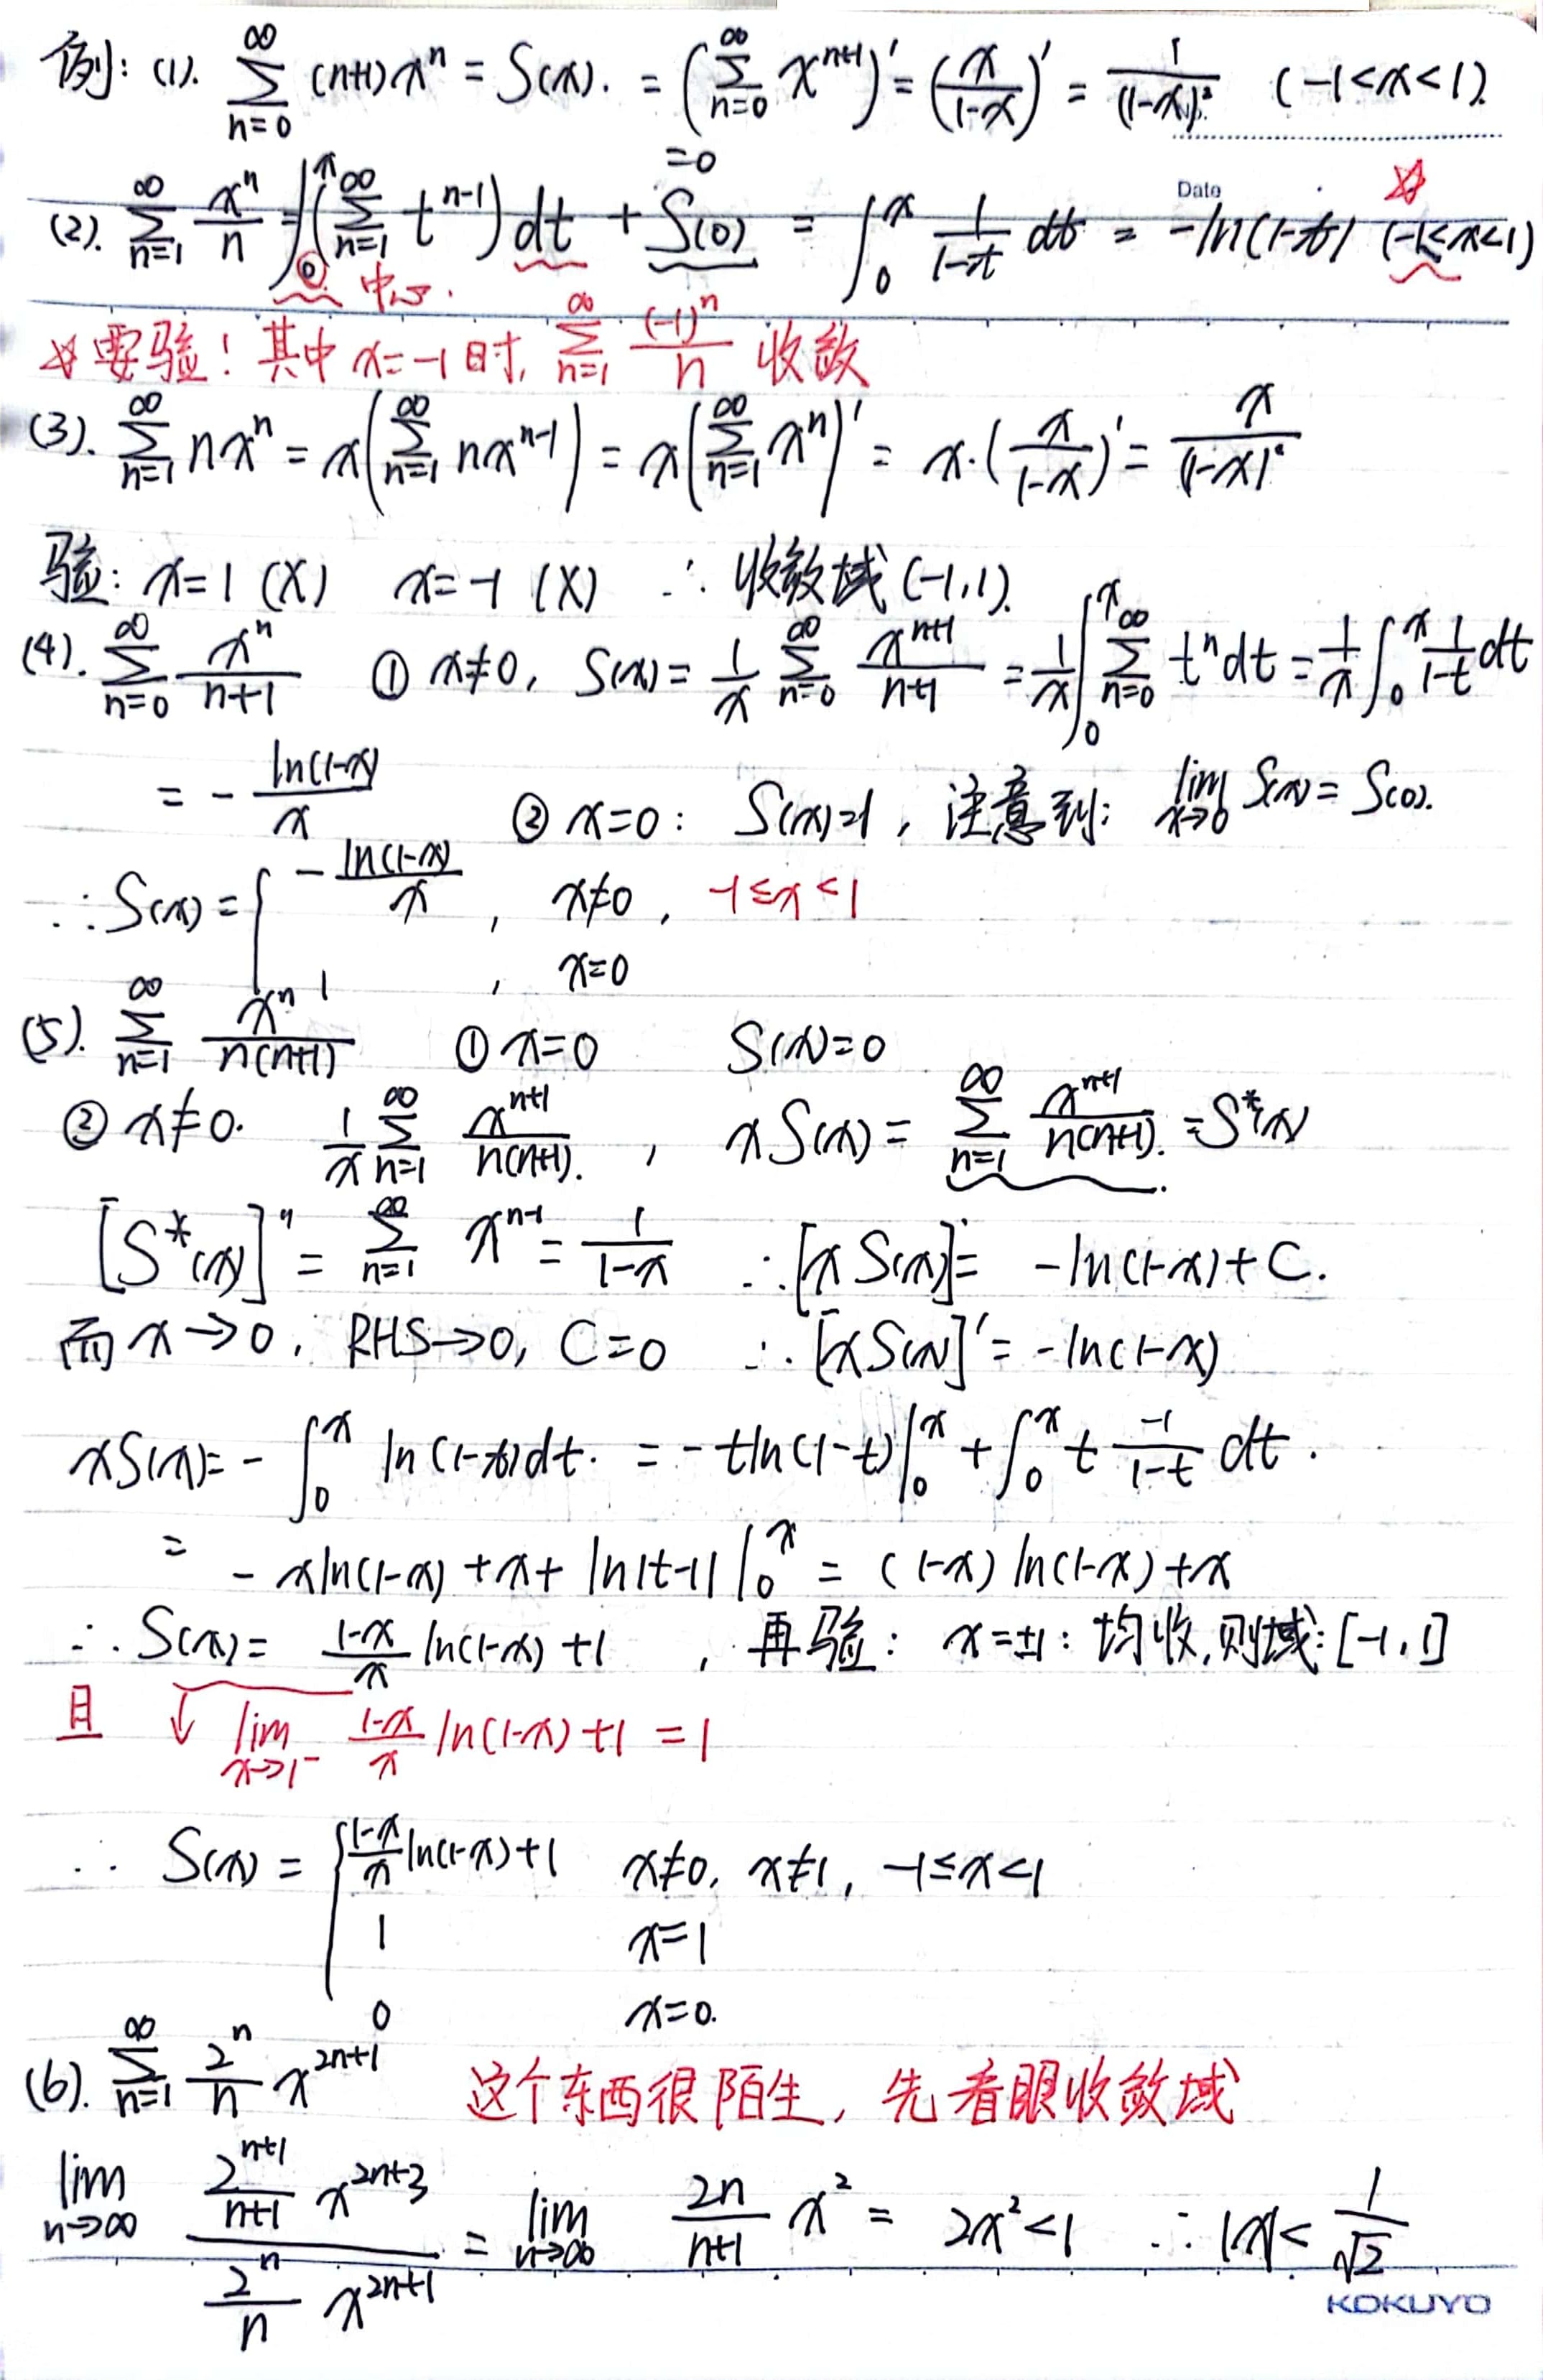 例: (1). ∑_{n=0}^{∞} (n+1)x^n = S(x). = (∑_{n=0}^{∞} x^{n+1})' = (x/(1-x))' = 1/(1-x)² (-1<x<1).
Date
=0
(2). ∑_{n=1}^{∞} x^n/n = ∫_0^x (∑_{n=1}^{∞} t^{n-1}) dt + S(0) = ∫_0^x 1/(1-t) dt = -ln(1-x) (-1≤x<1) ☆
中心.
☆要验! 其中 x=-1时, ∑_{n=1}^{∞} (-1)^n/n 收敛
(3). ∑_{n=1}^{∞} nx^n = x(∑_{n=1}^{∞} nx^{n-1}) = x(∑_{n=1}^{∞} x^n)' = x·(x/(1-x))' = x/(1-x)²
验: x=1 (X) x=-1 (X) ∴收敛域(-1,1).
(4). ∑_{n=0}^{∞} x^n/(n+1) ① x≠0, S(x)= 1/x ∑_{n=0}^{∞} x^{n+1}/(n+1) = 1/x ∫_0^x ∑_{n=0}^{∞} t^n dt = 1/x ∫_0^x 1/(1-t) dt
= - ln(1-x)/x ② x=0: S(x)=1, 注意到: lim_{x→0} S(x) = S(0).
∴S(x) = { -ln(1-x)/x , x≠0, -1≤x<1
1 , x=0
(5). ∑_{n=1}^{∞} x^n/(n(n+1)) ① x=0 S(x)=0
② x≠0. 1/x ∑_{n=1}^{∞} x^{n+1}/(n(n+1)). , xS(x) = ∑_{n=1}^{∞} x^{n+1}/(n(n+1)). = S*(x)
[S*(x)]'' = ∑_{n=1}^{∞} x^{n-1} = 1/(1-x) ∴[xS(x)]' = -ln(1-x)+C.
而 x→0, RHS→0, C=0 ∴[xS(x)]' = -ln(1-x)
xS(x) = - ∫_0^x ln(1-t)dt. = -tln(1-t)|_0^x + ∫_0^x t (-1)/(1-t) dt.
= -xln(1-x) + x + ln|t-1| |_0^x = (1-x) ln(1-x) + x
∴S(x) = (1-x)/x ln(1-x) + 1 , 再验: x=±1: 均收,则域: [-1,1]
且 ↓ lim_{x→1⁻} (1-x)/x ln(1-x) + 1 = 1
∴ S(x) = { (1-x)/x ln(1-x)+1 x≠0, x≠1, -1≤x<1
1 x=1
0 x=0.
(6). ∑_{n=1}^{∞} 2^n/n x^{2n+1} 这个东西很陌生, 先看眼收敛域
lim_{n→∞} (2^{n+1}/(n+1) x^{2n+3})/(2^n/n x^{2n+1}) = lim_{n→∞} 2n/(n+1) x² = 2x²<1 ∴|x|< 1/√2
KOKUYO